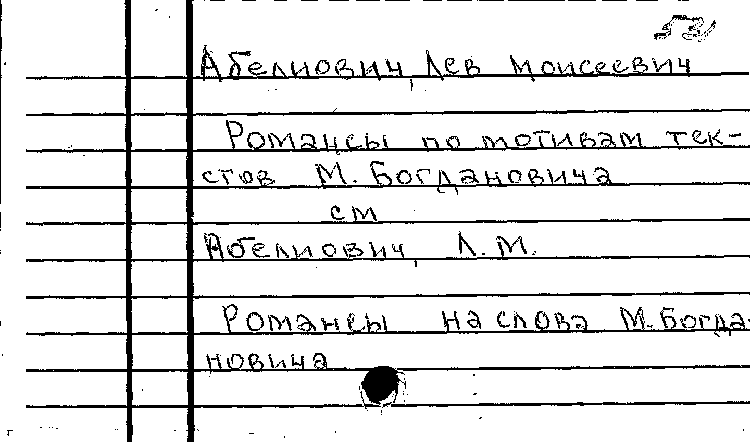 Абелиович, Лев Моисеевич
Романсы по мотивам тек-
стов М. Богдановича
см
Абелиович, Л.М.
Романсы на слова М. Богда-
новича